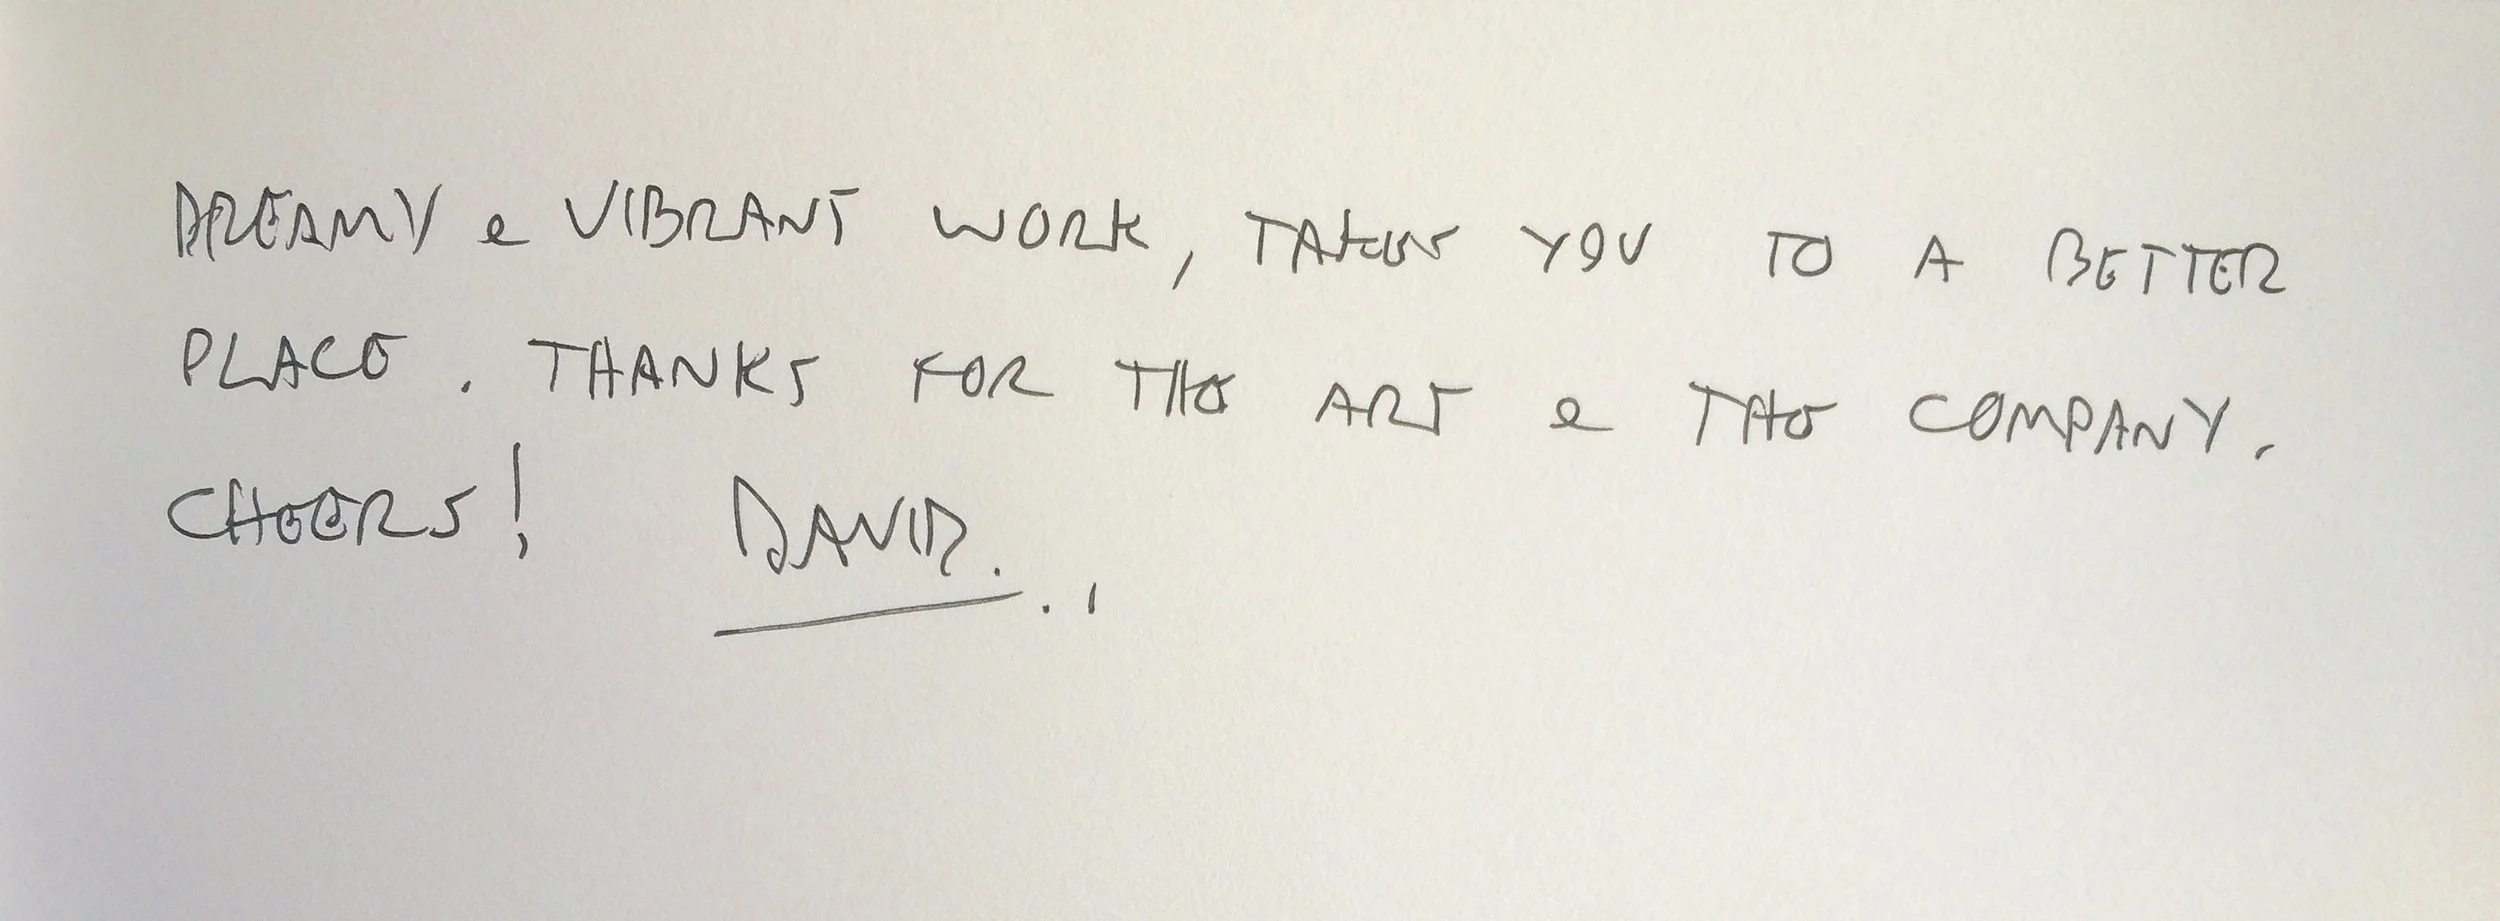 DREAMY e VIBRANT WORK, TAKES YOU TO A BETTER
PLACE. THANKS FOR THE ART e THE COMPANY.
CHEERS! DAVID.